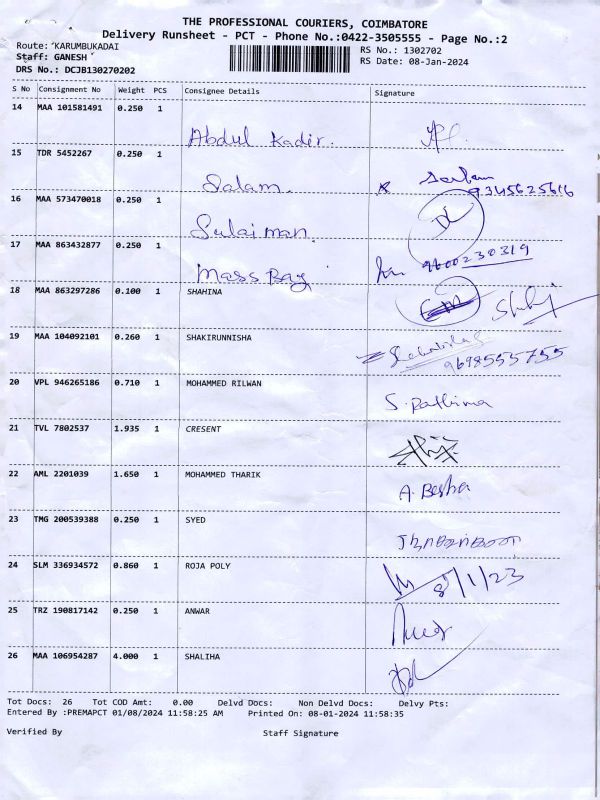 THE PROFESSIONAL COURIERS, COIMBATORE
Delivery Runsheet - PCT - Phone No.:0422-3505555 - Page No.:2
Route: KARUMBUKADAI
RS No.: 1302702
Staff: GANESH
RS Date: 08-Jan-2024
DRS No.: DCJB130270202
S No Consignment No Weight PCS Consignee Details Signature
14 MAA 101581491 0.250 1 Abdul Kadir.
15 TDR 5452267 0.250 1 Salam. 9345625616
16 MAA 573470018 0.250 1 Sulaiman.
17 MAA 863432877 0.250 1 Mass Bag 9600230319
18 MAA 863297286 0.100 1 SHAHINA
19 MAA 104092101 0.260 1 SHAKIRUNNISHA 9698555755
20 VPL 946265186 0.710 1 MOHAMMED RILWAN S. Pathima
21 TVL 7802537 1.935 1 CRESENT
22 AML 2201039 1.650 1 MOHAMMED THARIK A. Besha
23 TMG 200539388 0.250 1 SYED
24 SLM 336934572 0.860 1 ROJA POLY 8/1/23
25 TRZ 190817142 0.250 1 ANWAR
26 MAA 106954287 4.000 1 SHALIHA
Tot Docs: 26 Tot COD Amt: 0.00 Delvd Docs: Non Delvd Docs: Delvy Pts:
Entered By :PREMAPCT 01/08/2024 11:58:25 AM Printed On: 08-01-2024 11:58:35
Verified By Staff Signature